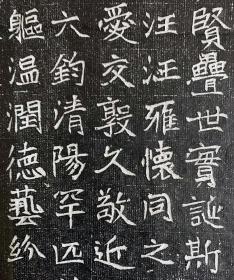 賢疊世實誕斯
汪汪雅懷之
愛交久敬近
六鈞清陽罕匹
軀温潤德藝紛